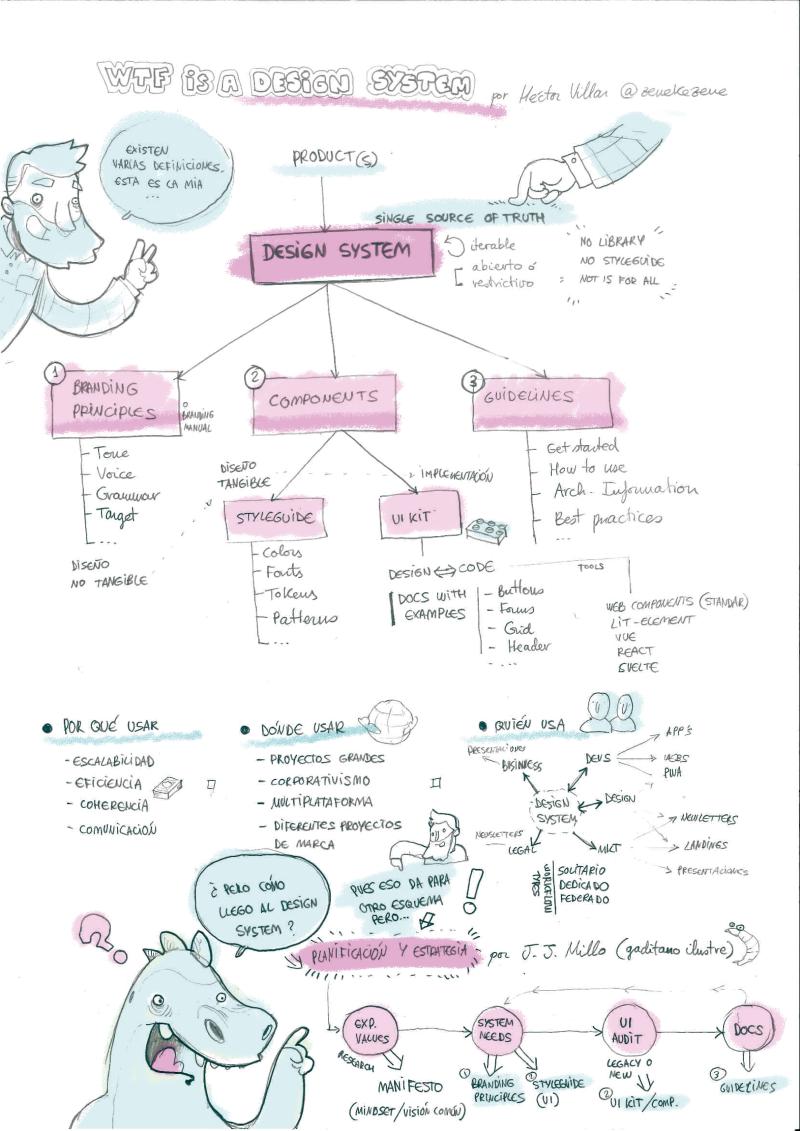 WTF IS A DESIGN SYSTEM
por Héctor Villar @zenekezene
EXISTEN
VARIAS DEFINICIONES.
ESTA ES LA MÍA
...
PRODUCT(S)
SINGLE SOURCE OF TRUTH
DESIGN SYSTEM
iterable
abierto ó
restrictivo
NO LIBRARY
NO STYLEGUIDE
NOT IS FOR ALL
1
BRANDING
PRINCIPLES
O
BRANDING
MANUAL
Tone
Voice
Grammar
Target
...
DISEÑO
NO TANGIBLE
2
COMPONENTS
DISEÑO
TANGIBLE
IMPLEMENTACIÓN
STYLEGUIDE
Colors
Fonts
Tokens
Patterns
...
UI KIT
DESIGN ⟷ CODE
DOCS WITH
EXAMPLES
- Buttons
- Forms
- Grid
- Header
- ...
TOOLS
WEB COMPONENTS (STANDAR)
LIT-ELEMENT
VUE
REACT
SVELTE
3
GUIDELINES
Get started
How to use
Arch. Information
Best practices
...
• POR QUÉ USAR
- ESCALABILIDAD
- EFICIENCIA
- COHERENCIA
- COMUNICACIÓN
• DÓNDE USAR
- PROYECTOS GRANDES
- CORPORATIVISMO
- MULTIPLATAFORMA
- DIFERENTES PROYECTOS
DE MARCA
• QUIÉN USA
PRESENTACIONES
BUSINESS
DEVS
APP'S
WEBS
PWA
DESIGN
SYSTEM
DESIGN
NEWSLETTERS
LEGAL
MKT
NEWLETTERS
LANDINGS
PRESENTACIONES
WORKFLOW
TYPES
SOLITARIO
DEDICADO
FEDERADO
¿PERO CÓMO
LLEGO AL DESIGN
SYSTEM?
PUES ESO DA PARA
OTRO ESQUEMA
PERO...
!
?
PLANIFICACIÓN Y ESTRATEGIA
por J.J. Millo (gaditano ilustre)
EXP.
VALUES
RESEARCH
MANIFESTO
(MINDSET/VISIÓN COMÚN)
SYSTEM
NEEDS
1 BRANDING
PRINCIPLES
2 STYLEGUIDE
(UI)
UI
AUDIT
LEGACY O
NEW
2 UI KIT/COMP.
DOCS
3 GUIDELINES